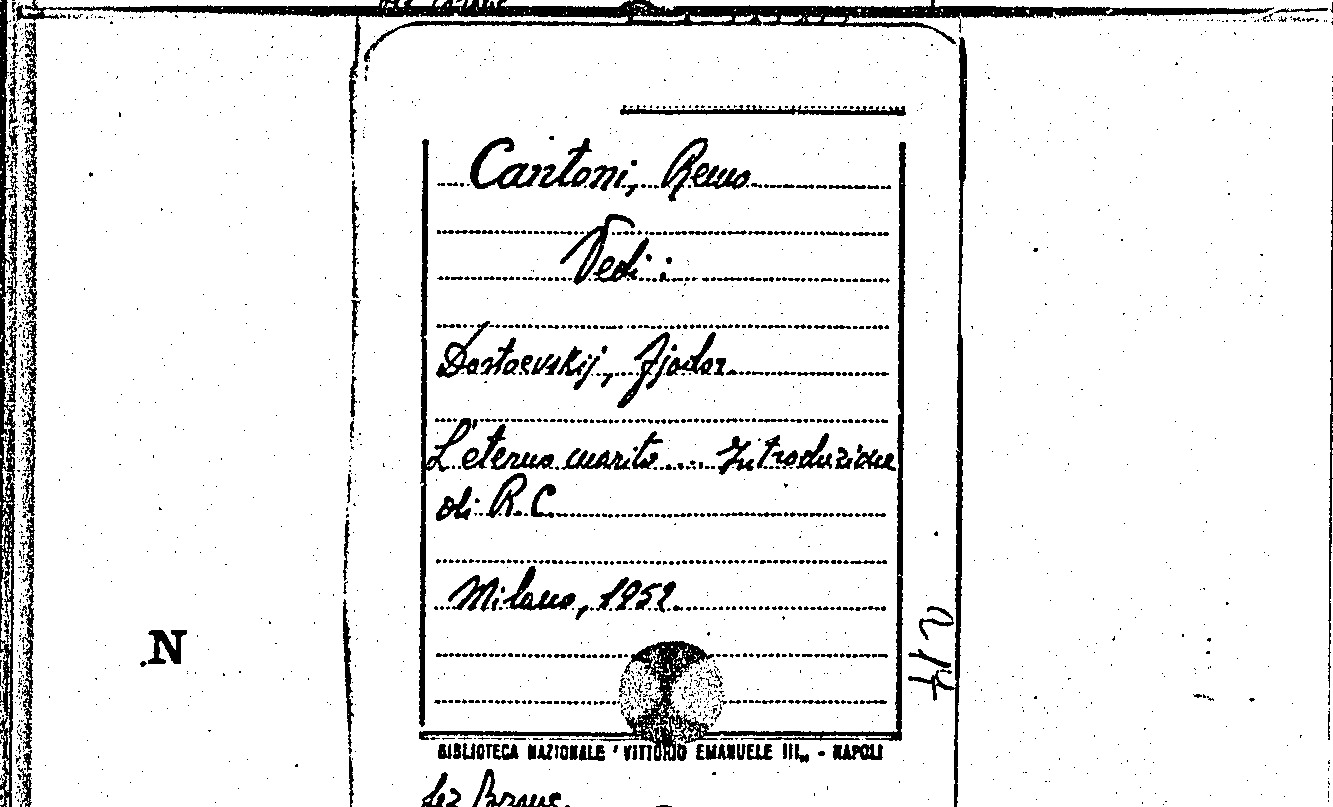 Cantoni, Remo
Vedi:
Dostoevskij, Fjodor.
L'eterno marito... Introduzione
di R. C.
Milano, 1952.
N
BIBLIOTECA NAZIONALE "VITTORIO EMANUELE III„ - NAPOLI